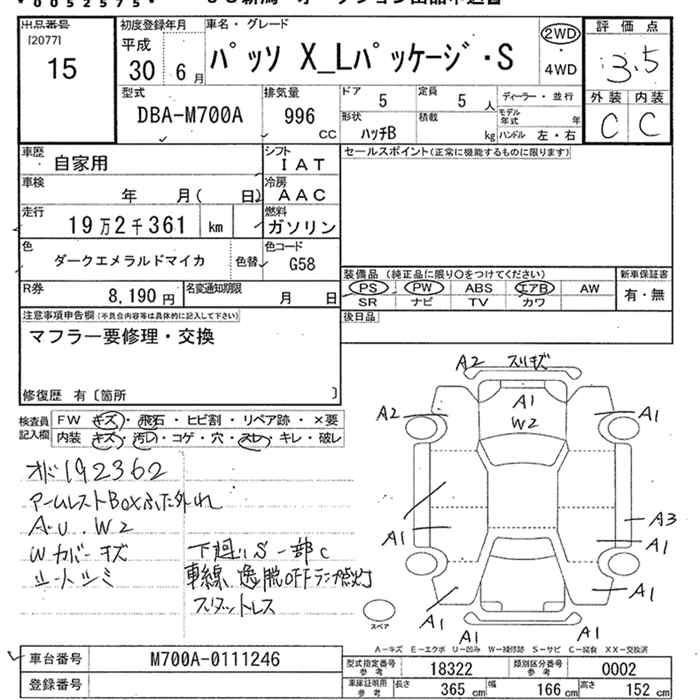 *0052575*
出品番号
[2077]
15
初度登録年月
平成
30年6月
車名・グレード
パッソ X_Lパッケージ・S
2WD
・
4WD
評価点
3.5
外装 内装
C C
型式
DBA-M700A
排気量
996 cc
ドア
5
定員
5 人
ディーラー・並行
形状
ハッチB
積載
kg
モデル年式 年
ハンドル 左・右
車歴
自家用
シフト
IAT
セールスポイント(正常に機能するものに限ります)
車検
年 月( 日)
冷房
AAC
走行
19万2千361 km
燃料
ガソリン
色
ダークエメラルドマイカ
色替
色コード
G58
R券
8,190 円
名変通知期限
月 日
装備品(純正品に限り○をつけてください)
PS PW ABS エアB AW
SR ナビ TV カワ
新車保証書
有・無
後日品
注意事項申告欄(不具合内容等は具体的に記入して下さい)
マフラー要修理・交換
修復歴 有〔箇所 〕
検査員記入欄
FW キズ・飛石・ヒビ割・リペア跡・×要
内装 キズ・汚れ・コゲ・穴・スレ・キレ・破レ
オド192362
アームレストBoxふた外れ
AU.W2
Wカバーキズ
シートシミ
下廻りS一部C
車線逸脱OFFランプ点灯
スタットレス
A2 スリキズ
A1
W2
A2
A1
A1
A3
A1
A1
A1
A1
A1
スペア
A-キズ E-エクボ U-凹み W-補修跡 S-サビ C-腐食 XX-交換済
車台番号
M700A-0111246
登録番号
型式指定番号
参考
18322
類別区分番号
参考
0002
車庫証明用
参考
長さ
365 cm
幅
166 cm
高さ
152 cm